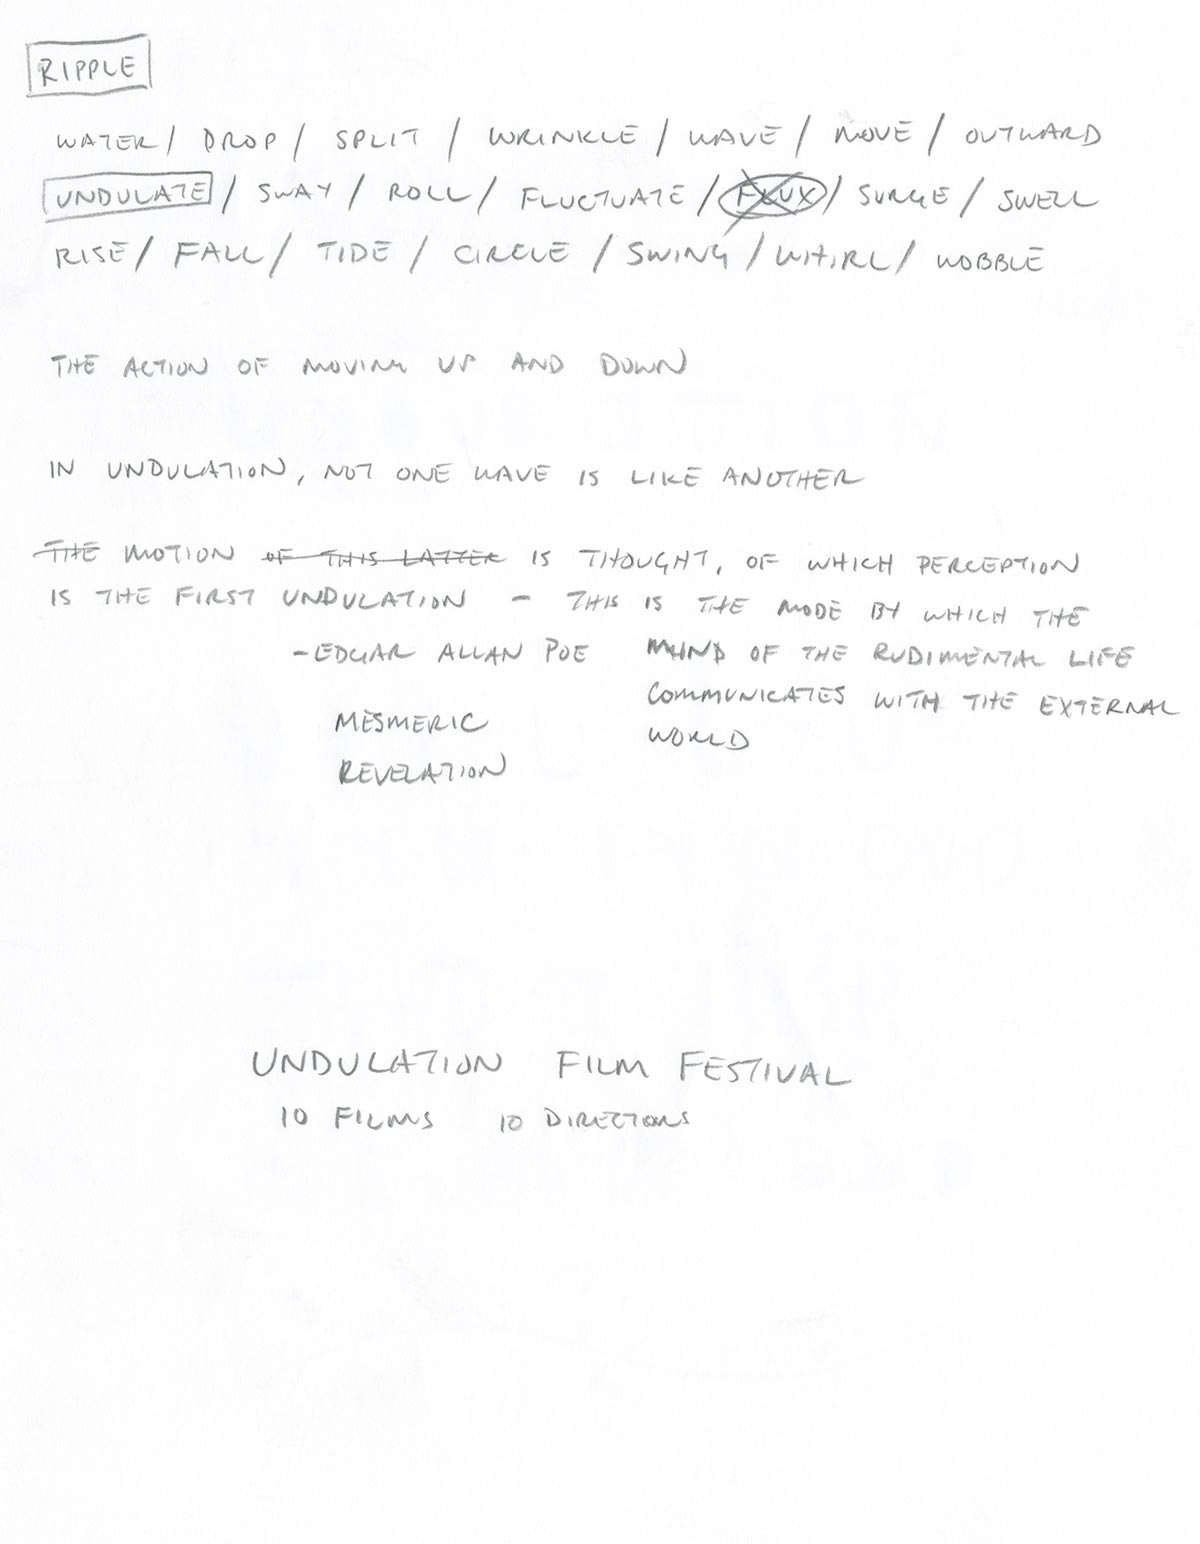 RIPPLE
WATER / DROP / SPLIT / WRINKLE / WAVE / MOVE / OUTWARD
UNDULATE / SWAY / ROLL / FLUCTUATE / FLUX / SURGE / SWELL
RISE / FALL / TIDE / CIRCLE / SWING / WHIRL / WOBBLE
THE ACTION OF MOVING UP AND DOWN
IN UNDULATION, NOT ONE WAVE IS LIKE ANOTHER
THE MOTION OF THIS LATTER IS THOUGHT, OF WHICH PERCEPTION
IS THE FIRST UNDULATION - THIS IS THE MODE BY WHICH THE
MIND OF THE RUDIMENTAL LIFE
COMMUNICATES WITH THE EXTERNAL
WORLD
- EDGAR ALLAN POE
MESMERIC
REVELATION
UNDULATION FILM FESTIVAL
10 FILMS 10 DIRECTORS